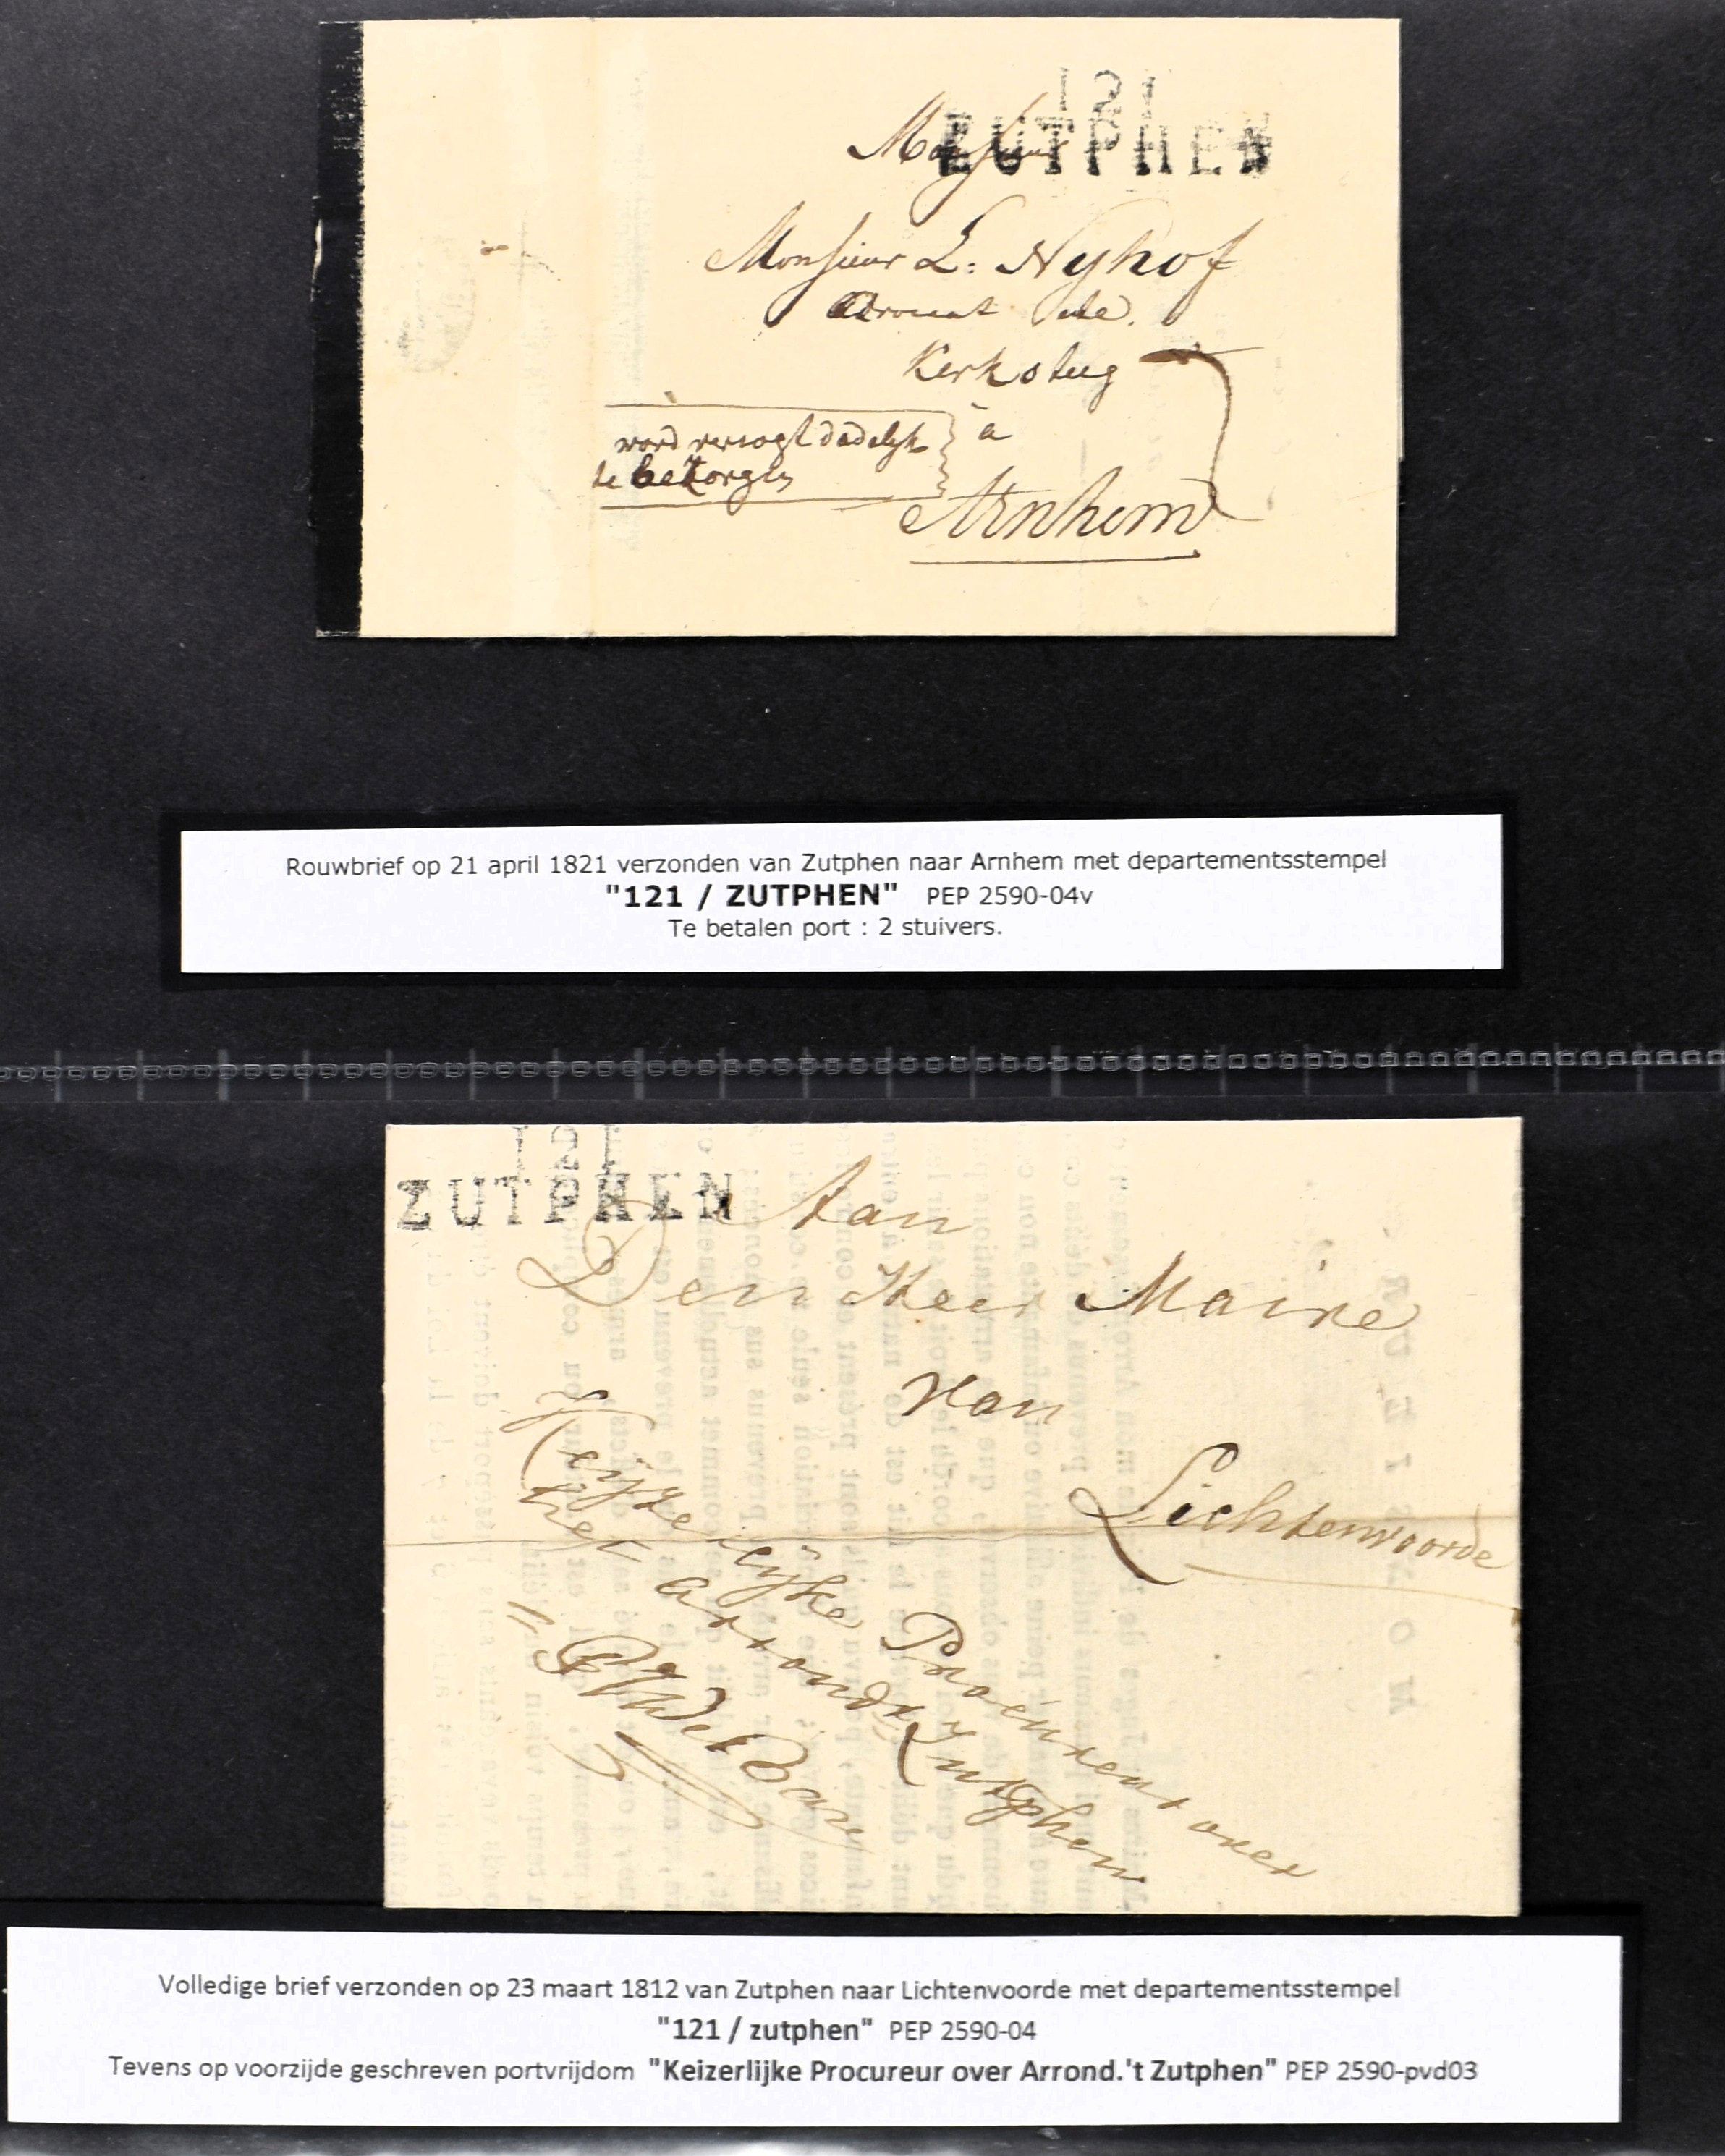 121
ZUTPHEN
Monsieur
Monsieur L: Nyhof
Avocat
Kerksteeg
word versogt dadelyk
te bezorgen
a
Arnhem
Rouwbrief op 21 april 1821 verzonden van Zutphen naar Arnhem met departementsstempel
"121 / ZUTPHEN" PEP 2590-04v
Te betalen port : 2 stuivers.
121
ZUTPHEN
Aan
Den Heer Maire
van
Lichtenvoorde
Keijzerlijke Procureur over
het Arrondt Zutphen
Volledige brief verzonden op 23 maart 1812 van Zutphen naar Lichtenvoorde met departementsstempel
"121 / zutphen" PEP 2590-04
Tevens op voorzijde geschreven portvrijdom "Keizerlijke Procureur over Arrond.'t Zutphen" PEP 2590-pvd03